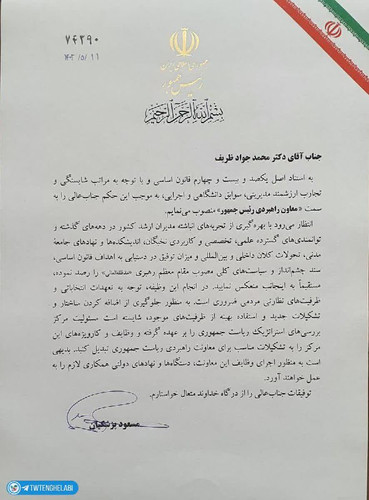 ۷۴۲۹۰
۱۴۰۳/۵/۱۱
جمهوری اسلامی ایران
رئیس جمهور
بسم الله الرحمن الرحیم
جناب آقای دکتر محمد جواد ظریف
به استناد اصل یکصد و بیست و چهارم قانون اساسی و با توجه به مراتب شایستگی و
تجارب ارزشمند مدیریتی، سوابق دانشگاهی و اجرایی، به موجب این حکم جناب‌عالی را به
سمت «معاون راهبردی رئیس جمهور» منصوب می‌نمایم.
انتظار می‌رود با بهره‌گیری از تجربه‌های انباشته مدیران ارشد کشور در دهه‌های گذشته و
توانمندی‌های گسترده علمی، تخصصی و کاربردی نخبگان، اندیشکده‌ها و نهادهای جامعهٔ
مدنی، تحولات کلان داخلی و بین‌المللی و میزان توفیق در دستیابی به اهداف قانون اساسی،
سند چشم‌انداز و سیاست‌های کلی مصوب مقام معظم رهبری (مدظله‌العالی) را رصد نموده،
مستقیماً به اینجانب منعکس نمایید. در انجام این وظیفه، توجه به تعهدات انتخاباتی و
ظرفیت‌های نظارتی مردمی ضروری است. به منظور جلوگیری از اضافه کردن ساختار و
تشکیلات جدید و استفاده بهینه از ظرفیت‌های موجود، شایسته است مسئولیت مرکز
بررسی‌های استراتژیک ریاست جمهوری را بر عهده گرفته و وظایف و کارویژه‌های این
مرکز را به تشکیلات مناسب برای معاونت راهبردی ریاست جمهوری تبدیل کنید. بدیهی
است به منظور اجرای وظایف این معاونت، دستگاه‌ها و نهادهای دولتی همکاری لازم را به
عمل خواهند آورد.
توفیقات جناب‌عالی را از درگاه خداوند متعال خواستارم.
مسعود پزشکیان
TWTENGHELABI